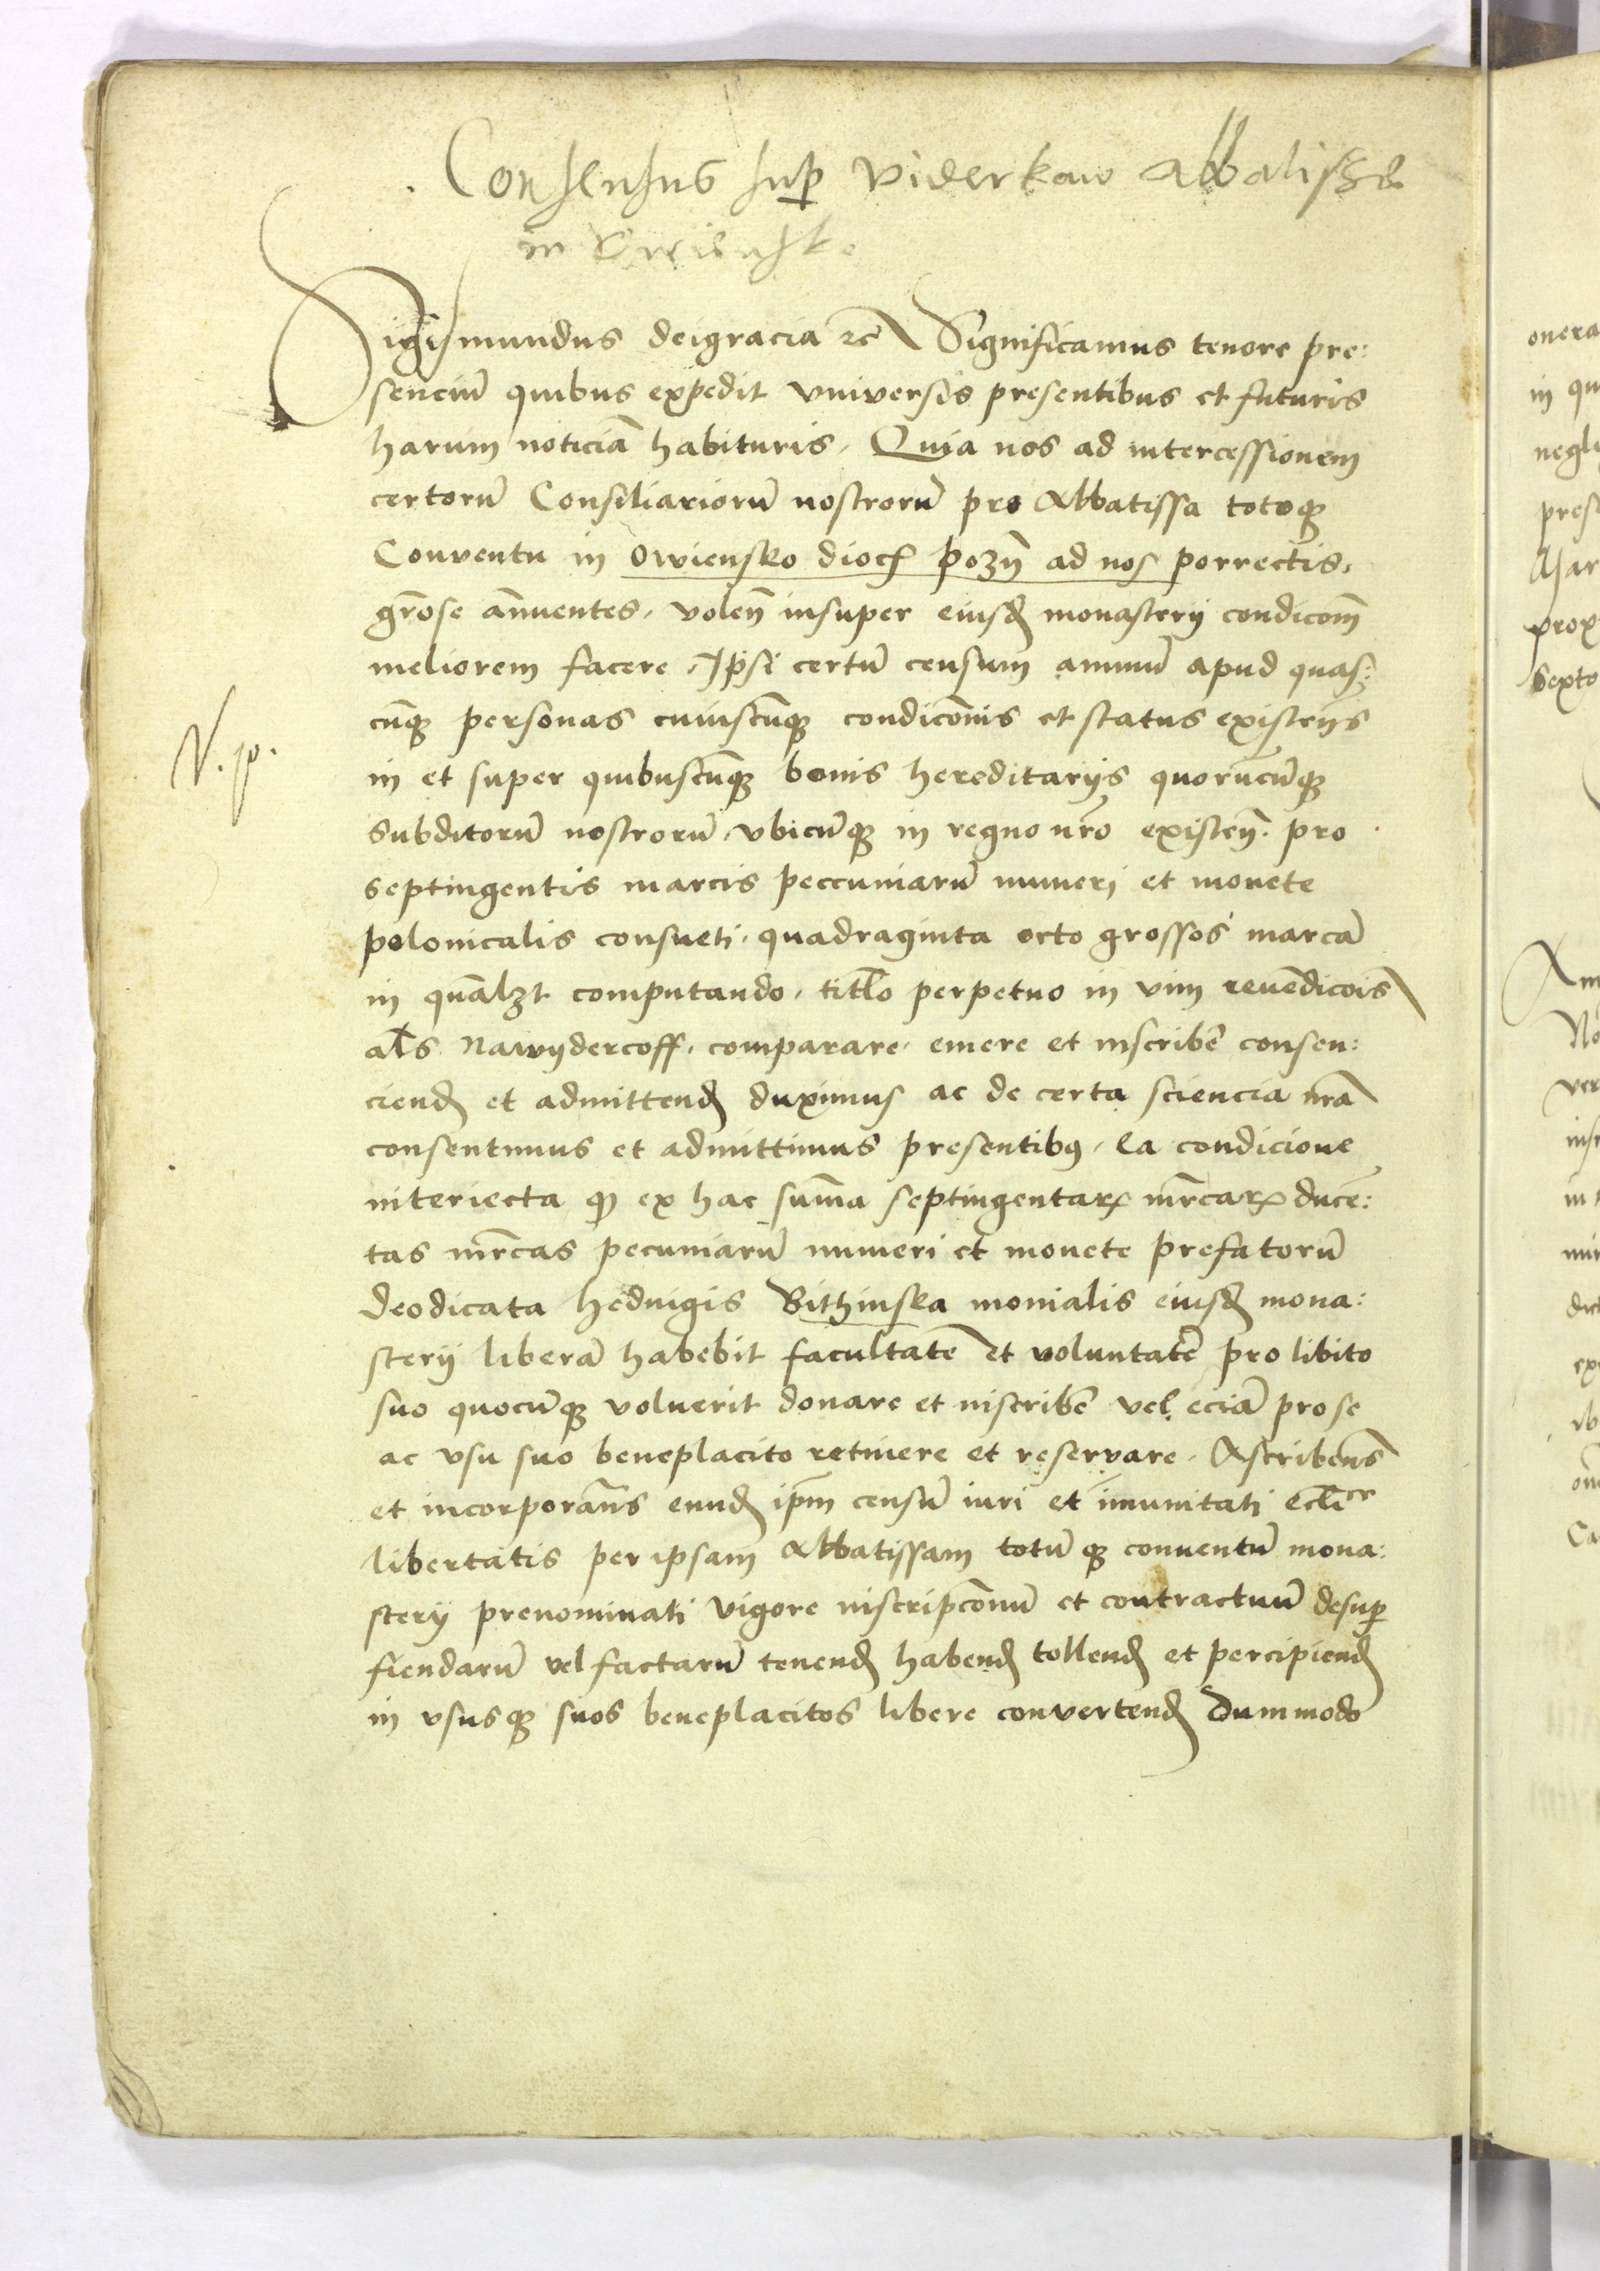 Consensus sup viderkaw Abbatisse
in
Sigismundus deigracia etc Significamus tenore pre:
senciũ quibus expedit vniversis presentibus et futuris
harum noticiã habituris. Quia nos ad intercessionem
certorũ Consiliariorũ nostrorũ pro Abbatissa totoqꝫ
Conventu in Owiensko dioc pozñ ad nos porrectis,
grõse añuentes, volen̄ insuper eiusd monasterij condicom̄
meliorem facere, Ipsi certũ censum annuũ apud quas:
cũqꝫ personas cuiuscũqꝫ condicõnis et status existen̄
in et super quibuscũqꝫ bonis hereditarijs quorũcũqꝫ
subditorũ nostrorũ, vbicũqꝫ in regno nrõ existen̄. pro
septingentis marcis peccuniarũ numeri et monete
polonicalis consueti, quadraginta octo grossos marcã
in quãlzt computando, titlo perpetuo in vim reuẽdicois
als Nawydercoff, comparare, emere et inscribẽ consen:
ciend et admittend duximus ac de certa sciencia nrã
consentimus et admittimus presentibꝰ, Ea condicione
interiecta qꝫ ex hac sum̃a septingentaꝝ mrcaꝝ ducẽ:
tas mrcas pecuniarũ numeri et monete prefatorũ
deodicata Heduigis Bithinska monialis eiusd mona:
sterij liberã habebit facultatẽ et voluntatẽ pro libito
suo quocũqꝫ voluerit donare et inscribẽ vel eciã pro se
ac vsu suo beneplacito retinere et reservare. Ascribens̃
et incorporãns eund ipm̄ censũ iuri et im̃unitati eccliᵉ
libertatis per ipsam Abbatissam totũqꝫ conuentũ mona:
sterij prenominati vigore inscripcõnũ et contractuũ desup
fiendarũ vel factarũ tenend habend tollend et percipiend
in vsusqꝫ suos beneplacitos libere convertend Dummodo